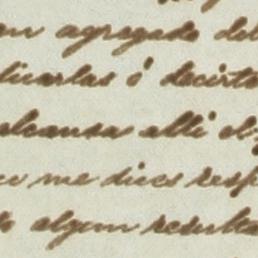 en agregado del
dicarlas ó decirte
alcansa alli el
me dices resp
algun resulta